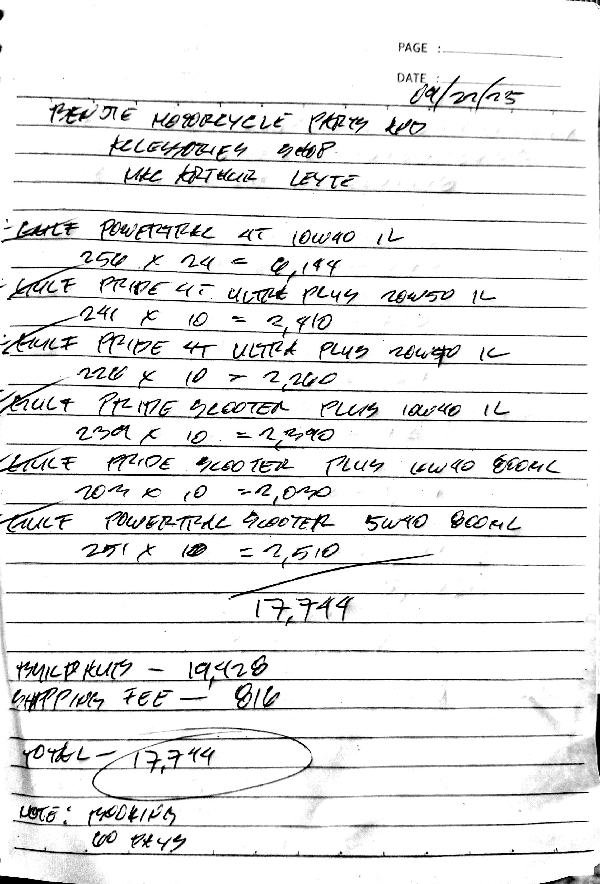 PAGE :
DATE : 09/22/25
BENJIE MOTORCYCLE PARTS AND
ACCESSORIES SHOP
MAC ARTHUR LEYTE
- GULF POWERTRAC 4T 10W40 1L
256 x 24 = 6,144
- GULF PRIDE 4T ULTRA PLUS 20W50 1L
241 x 10 = 2,410
- GULF PRIDE 4T ULTRA PLUS 20W40 1L
226 x 10 = 2,260
- GULF PRIDE SCOOTER PLUS 10W40 1L
239 x 10 = 2,390
- GULF PRIDE SCOOTER PLUS 10W40 800ML
203 x 10 = 2,030
- GULF POWERTRAC SCOOTER 5W40 800ML
251 x 10 = 2,510
17,744
- 19,428
SHIPPING FEE - 816
TOTAL - 17,744
NOTE: BOOKING
60 DAYS